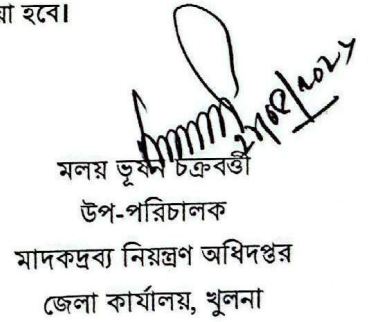 হবে।
মলয় ভূষন চক্রবর্ত্তী
উপ-পরিচালক
মাদকদ্রব্য নিয়ন্ত্রণ অধিদপ্তর
জেলা কার্যালয়, খুলনা